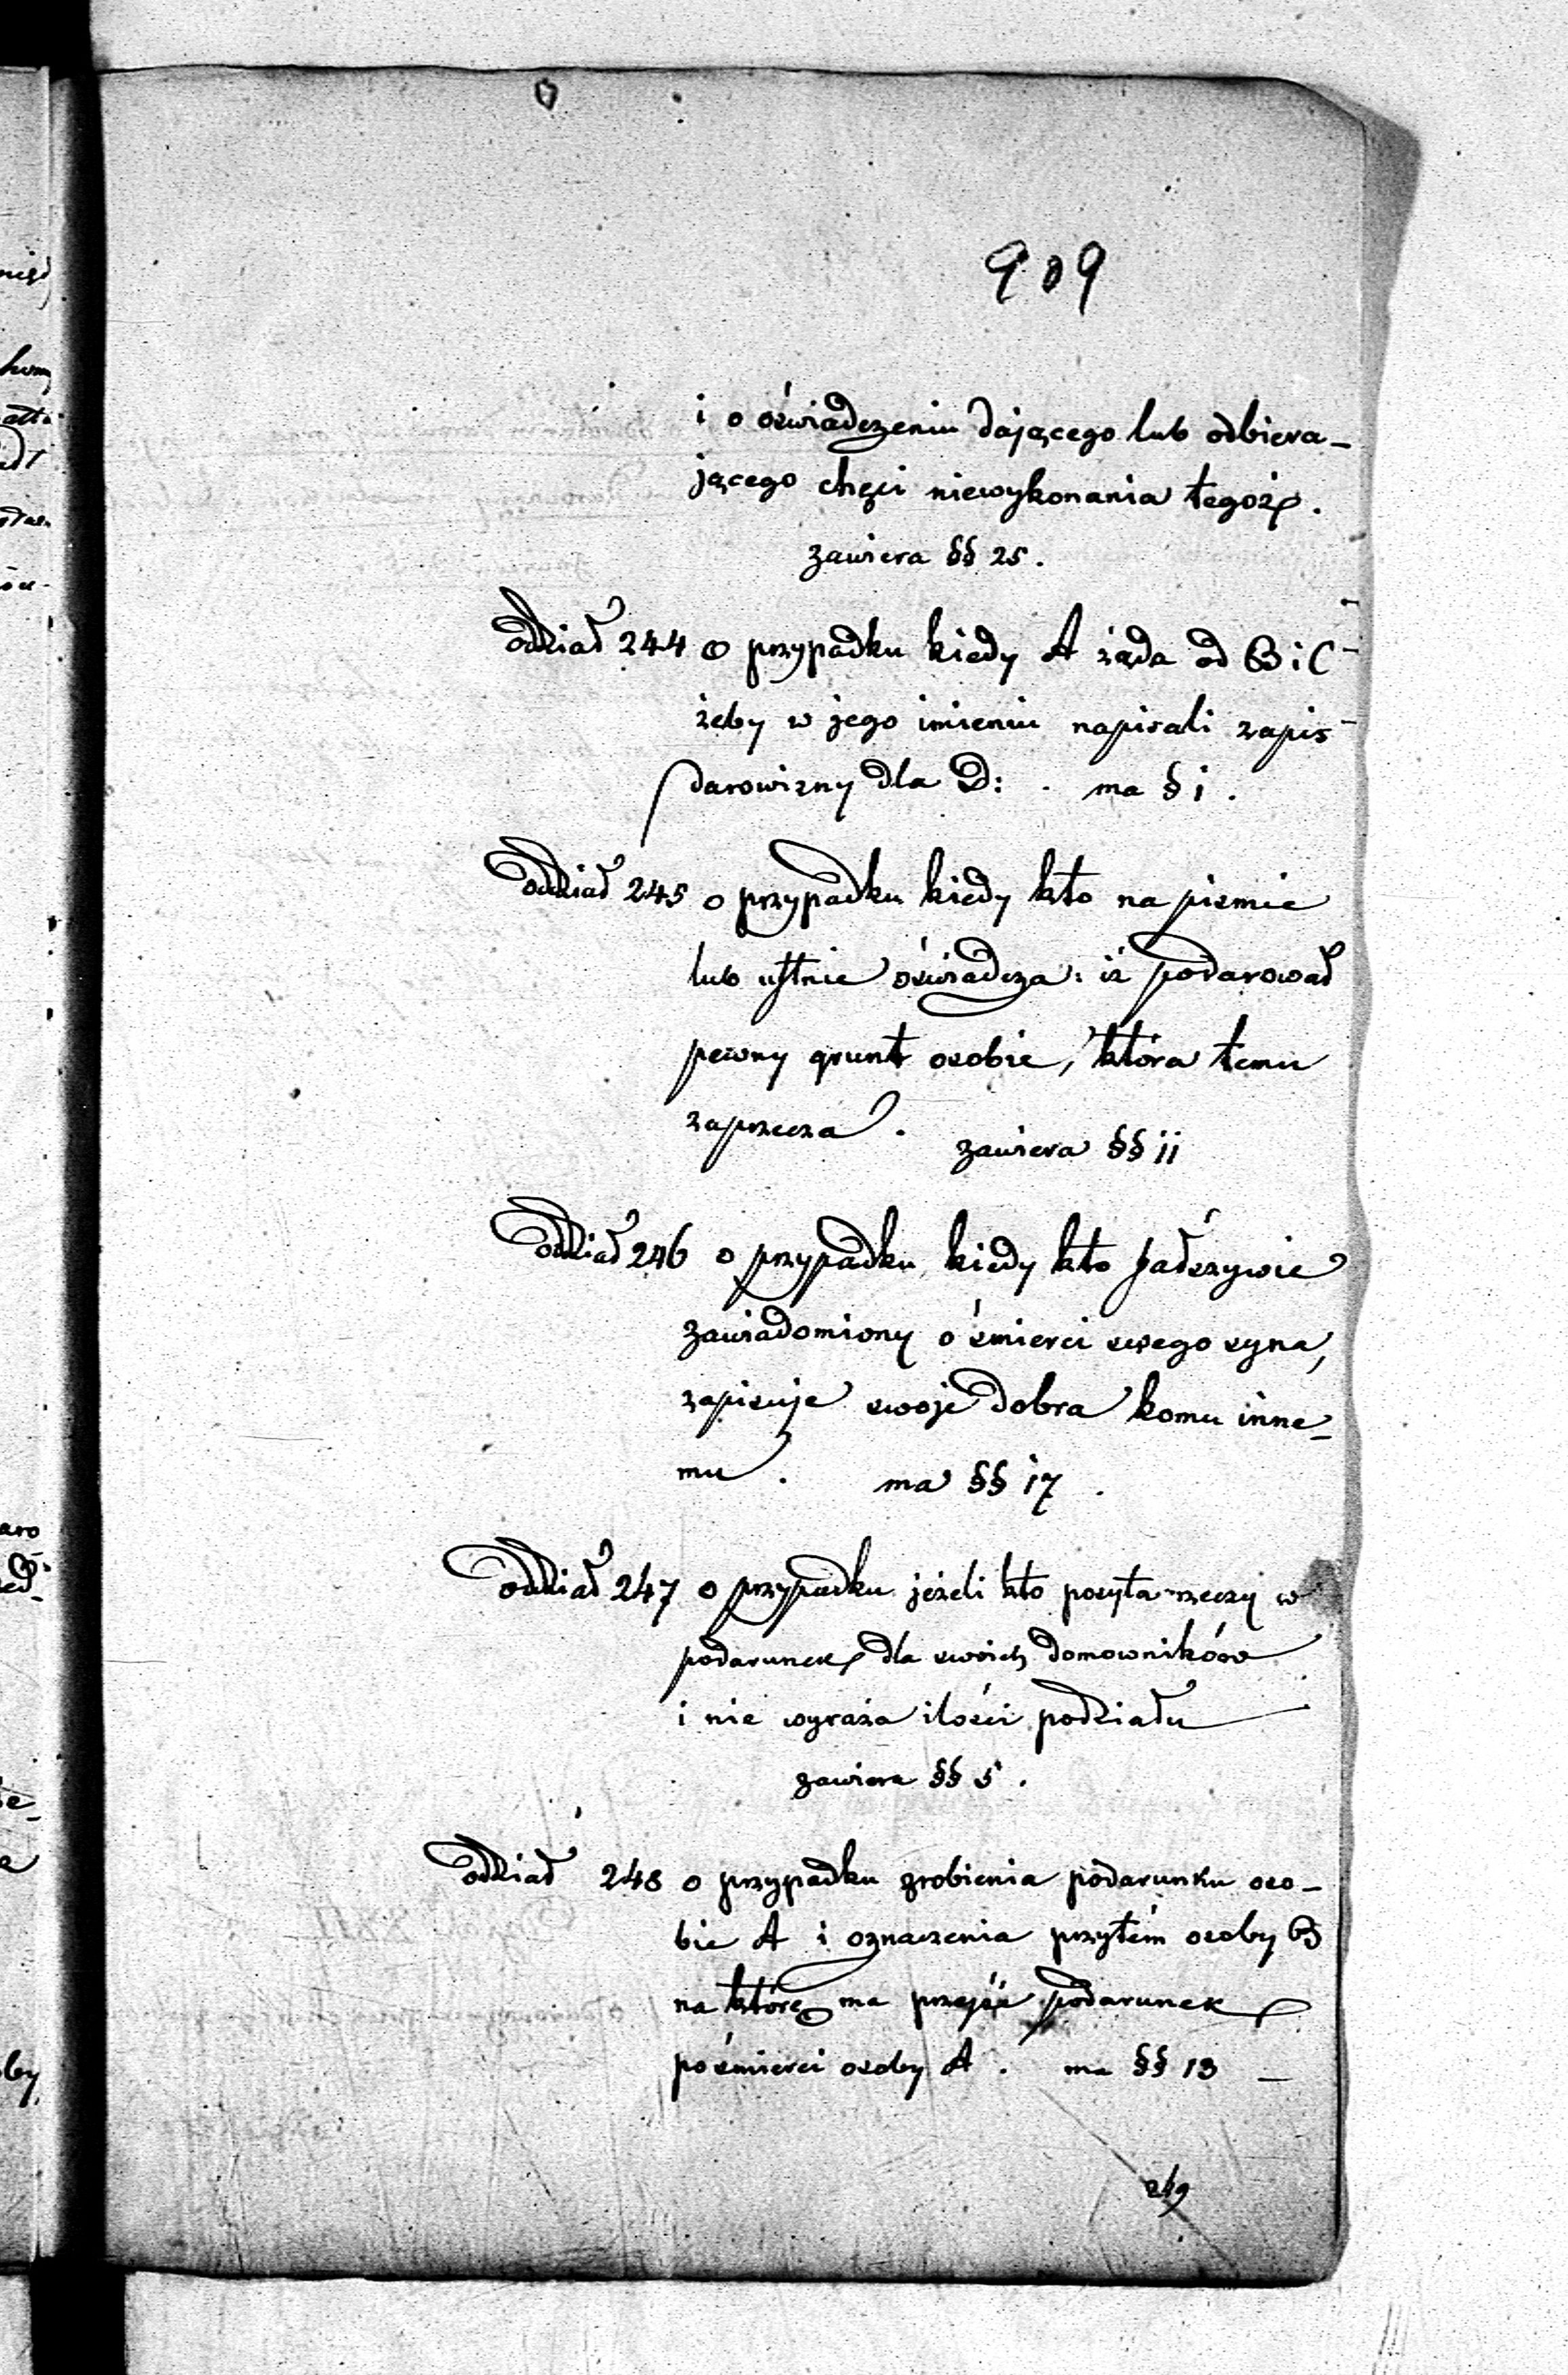 909
i o oświadczeniu dającego lub odbiera-
jącego chęci niewykonania tegoż.
zawiera §§ 25.
Oddział 244 o przypadku kiedy A żąda od B i C
żeby w jego imieniu napisali zapis
darowizny dla D: . ma § 1.
Oddział 245 o przypadku kiedy kto na piśmie
lub ustnie oświadcza: iż podarował
pewny grunt osobie, która temu
zaprzecza. zawiera §§ 11
Oddział 246 o przypadku kiedy kto fałszywie
zawiadomiony o śmierci swego syna,
zapisuje swoje dobra komu inne-
mu. ma §§ 17.
Oddział 247 o przypadku jeżeli kto posyła rzeczy w
podarunek dla swoich domowników
i nie wyraża ilości podziału
zawiera §§ 5.
Oddział 248 o przypadku zrobienia podarunku oso-
bie A i oznaczenia przytém osoby B
na którę ma przejść podarunek
po śmierci osoby A. ma §§ 13 -
249